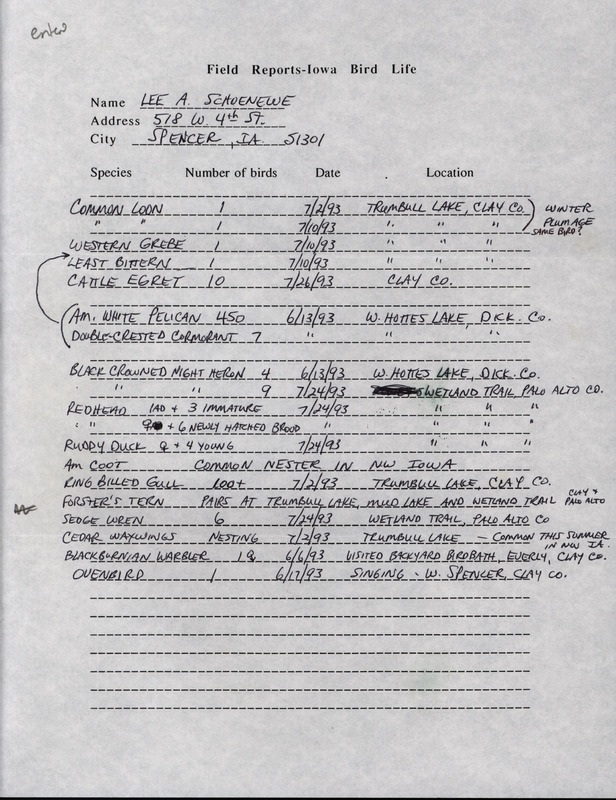 enter
Field Reports-Iowa Bird Life
Name LEE A. SCHOENEWE
Address 518 W. 4th ST.
City SPENCER, IA 51301
Species Number of birds Date Location
COMMON LOON 1 7/2/93 TRUMBULL LAKE, CLAY CO. WINTER
" " 1 7/10/93 " " " PLUMAGE SAME BIRD?
WESTERN GREBE 1 7/10/93 " " "
LEAST BITTERN 1 7/10/93 " " "
CATTLE EGRET 10 7/26/93 CLAY CO.
AM. WHITE PELICAN 450 6/13/93 W. HOTTES LAKE, DICK. CO.
DOUBLE-CRESTED CORMORANT 7 " " "
BLACK CROWNED NIGHT HERON 4 6/13/93 W. HOTTES LAKE, DICK. CO.
" " 9 7/24/93 WETLAND TRAIL, PALO ALTO CO.
REDHEAD 1AD + 3 IMMATURE 7/24/93 " " "
" " + 6 NEWLY HATCHED BROOD " " " "
RUDDY DUCK ♀ + 4 YOUNG 7/24/93 " " "
AM COOT COMMON NESTER IN NW IOWA
RING BILLED GULL 100+ 7/2/93 TRUMBULL LAKE, CLAY CO.
FORSTER'S TERN PAIRS AT TRUMBULL LAKE, MUD LAKE AND WETLAND TRAIL CLAY + PALO ALTO
SEDGE WREN 6 7/24/93 WETLAND TRAIL, PALO ALTO CO
CEDAR WAXWINGS NESTING 7/2/93 TRUMBULL LAKE - COMMON THIS SUMMER
IN NW IA.
BLACKBURNIAN WARBLER 1♀ 6/6/93 VISITED BACKYARD BIRDBATH, EVERLY, CLAY CO.
OVENBIRD 1 6/17/93 SINGING - W. SPENCER, CLAY CO.